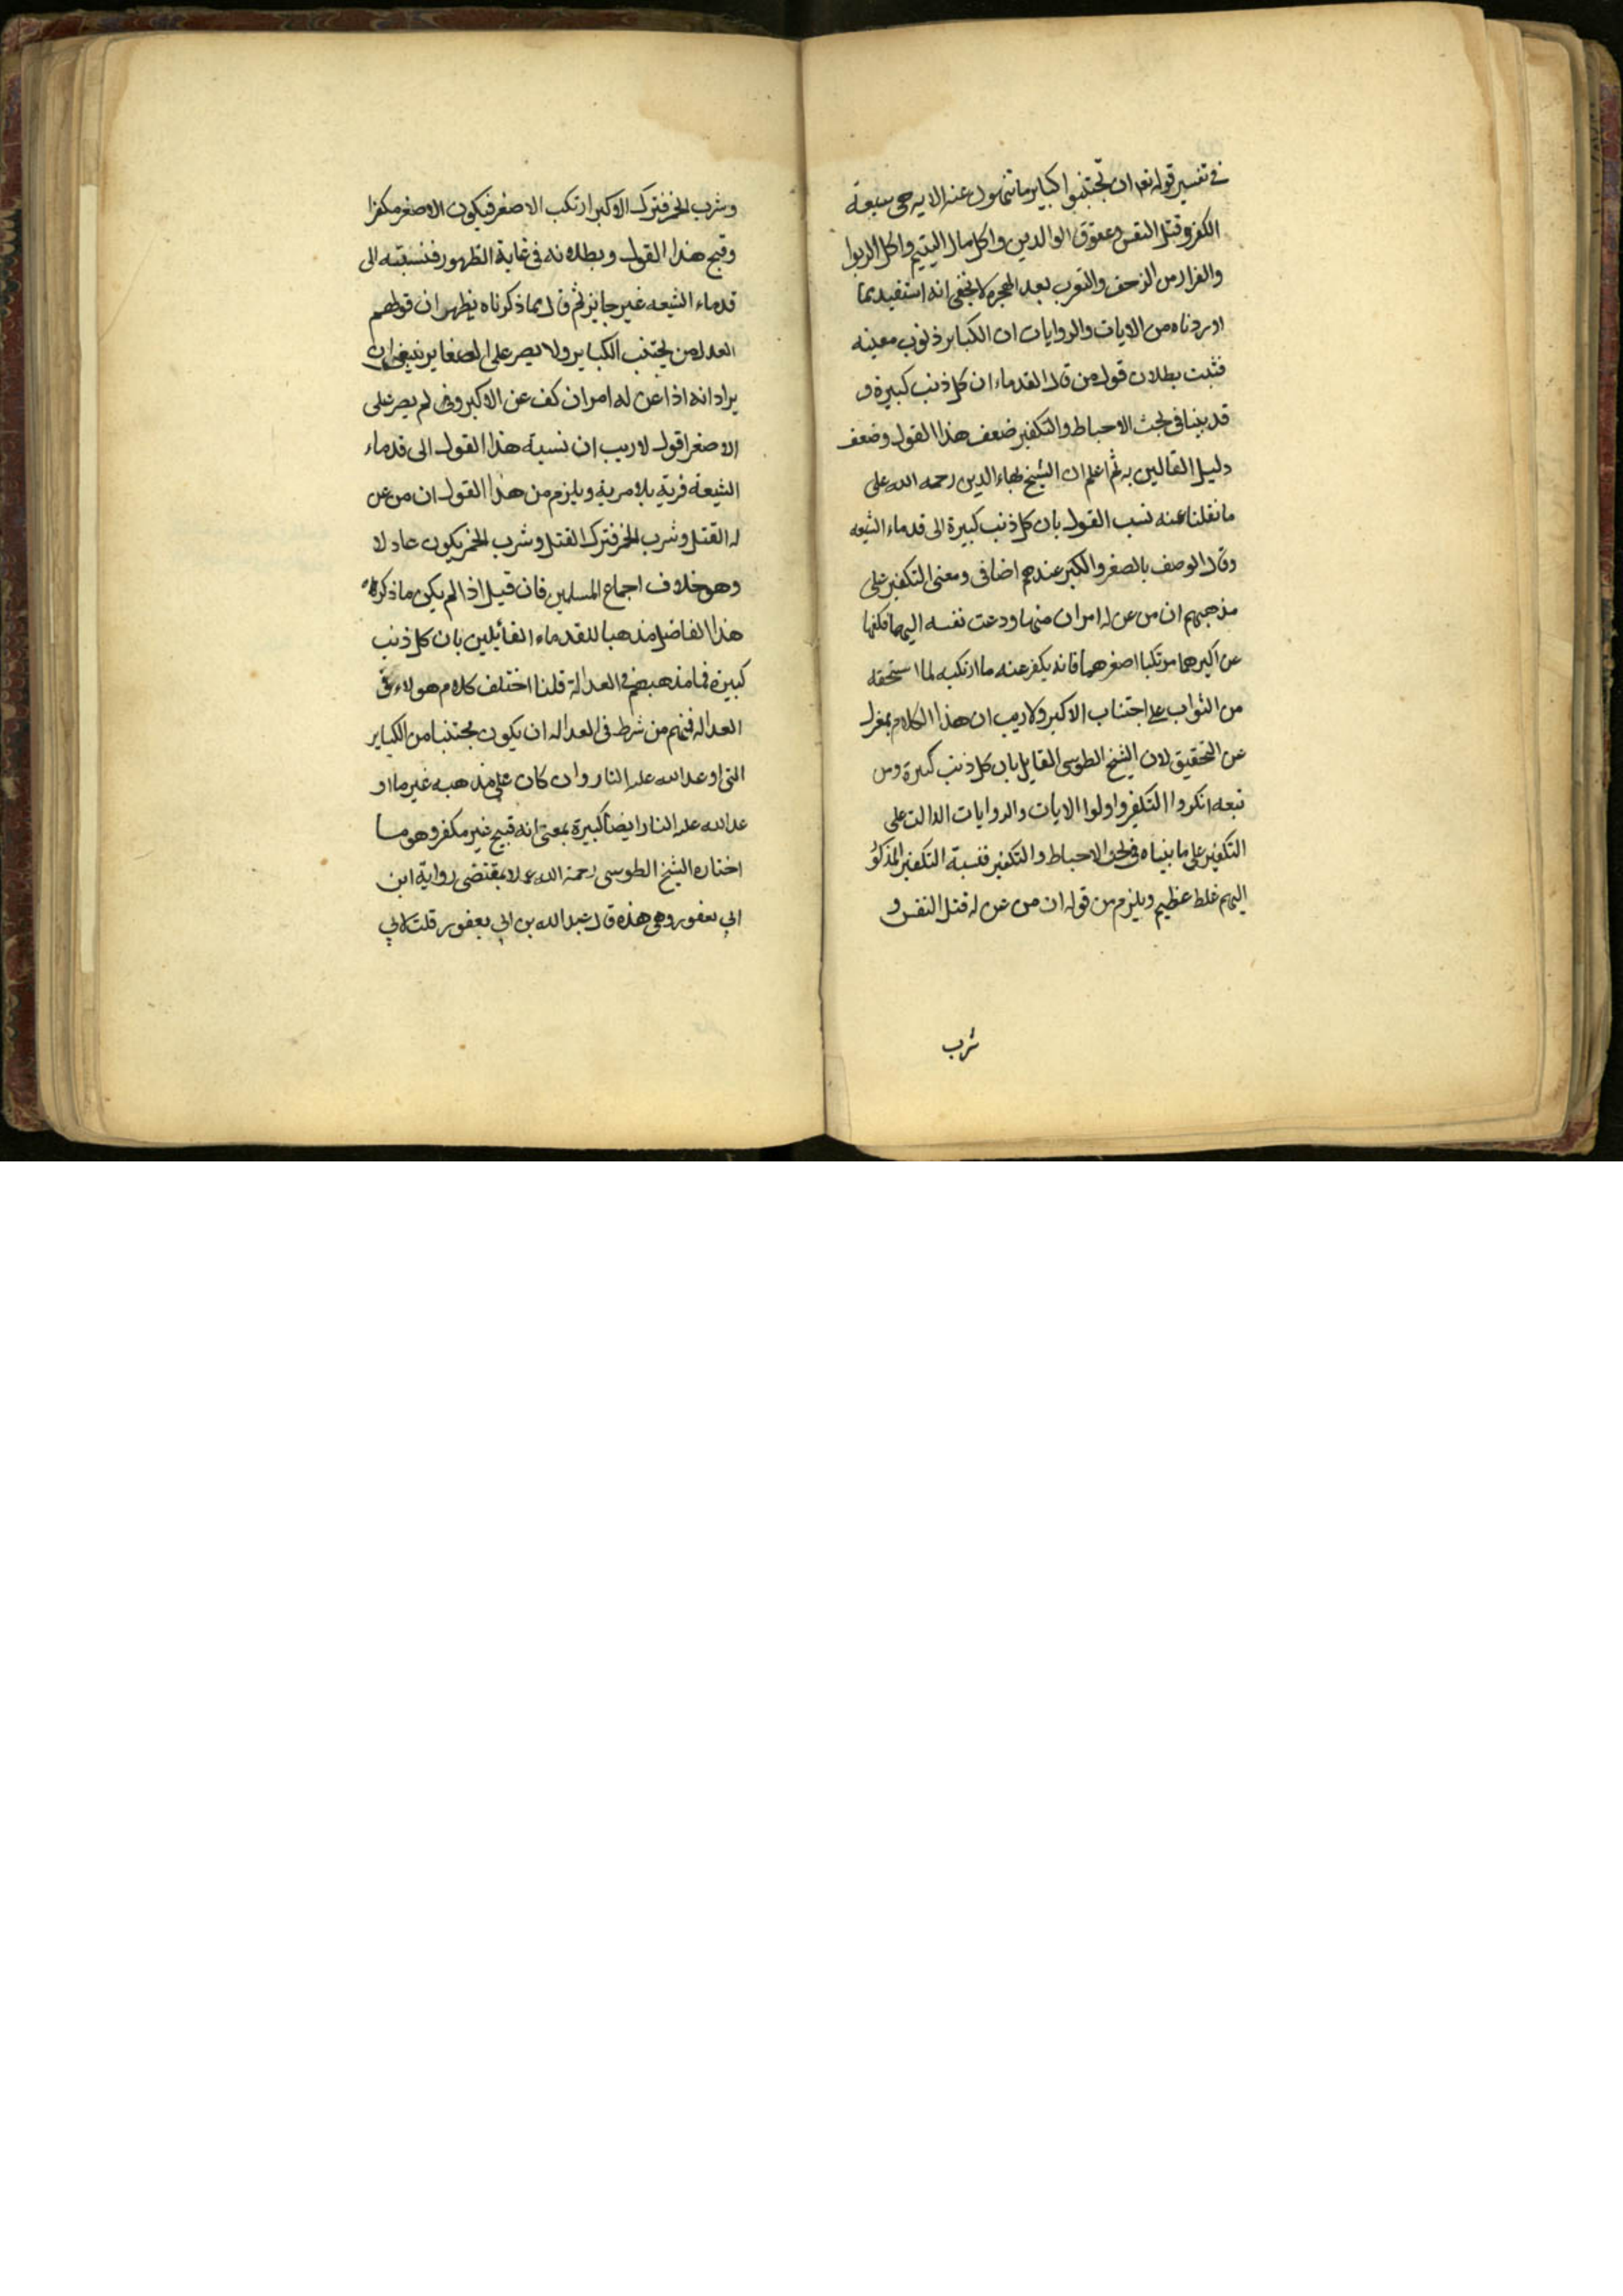 في تفسير قوله تعا ان تجتنبوا كباير ما تنهون عنه الايه هي سبعة
الكفر و قتل النفس و عقوق الوالدين و اكل مال اليتيم و اكل الربوا
والفرار من الزحف والتعرب بعد الهجره لا يخفى انه استفيد بما
اوردناه من الايات والروايات ان الكباير ذنوب معينه
فثبت بطلان قول من قال القدماء ان كل ذنب كبيرة و
قد بينا في بحث الاحباط والتكفير ضعف هذا القول وضعف
دليل القائلين به ثم اعلم ان الشيخ بهاء الدين رحمه الله على
ما نقلنا عنه نسب القول بان كل ذنب كبيرة الى قدماء الشيعه
وقال الوصف بالصغر والكبر عندهم اضافى ومعنى التكفير على
مذهبهم ان من عن له امران منها ودعت نفسه اليهما فكفها
عن اكبرهما مرتكبا اصغرهما فانه يكفر عنه ما ارتكبه لما استحقه
من الثواب على اجتناب الاكبر ولا ريب ان هذا الكلام بمعزل
عن التحقيق لان الشيخ الطوسى القايل بان كل ذنب كبيرة ومن
تبعه انكروا التكفير واولوا الايات والروايات الدالت على
التكفير على ما بيناه في بحث الاحباط والتكفير فنسبة التكفير المذكور
اليهم غلط عظيم ويلزم من قوله ان من عن له قتل النفس و
شرب
وشرب الخمر فترك الاكبر ارتكب الاصغر فيكون الاصغر مكفرا
وقبح هذا القول و بطلانه في غاية الظهور فنسبته الى
قدماء الشيعه غير جايز ثم قال بما ذكرناه يظهر ان قولهم
العدل من يجتنب الكباير ولا يصر على الصغاير ينبغي ان
يراد انه اذا عن له امران كف عن الاكبر و لم يصر على
الاصغر اقول لا ريب ان نسبة هذا القول الى قدماء
الشيعة فرية بلا مرية ويلزم من هذا القول ان من عن
له القتل وشرب الخمر فترك القتل وشرب الخمر يكون عادلا
وهو خلاف اجماع المسلمين فان قيل اذا لم يكن ما ذكره
هذا الفاضل مذهبا للقدماء القائيلين بان كل ذنب
كبيرة فما مذهبهم في العدالة قلنا اختلف كلام هولاء في
العداله فمنهم من شرط في العداله ان يكون مجتنبا من الكباير
التى اوعد الله عليه النار وان كان على مذهبه غير ما او
عد الله عليه النار ايضا كبيرة بمعنى انه قبيح غير مكفر وهو ما
اختاره الشيخ الطوسى رحمة الله عملا بمقتضى رواية ابن
ابي يعفور وهى هذه قال عبد الله بن ابي يعفور قلت لابي